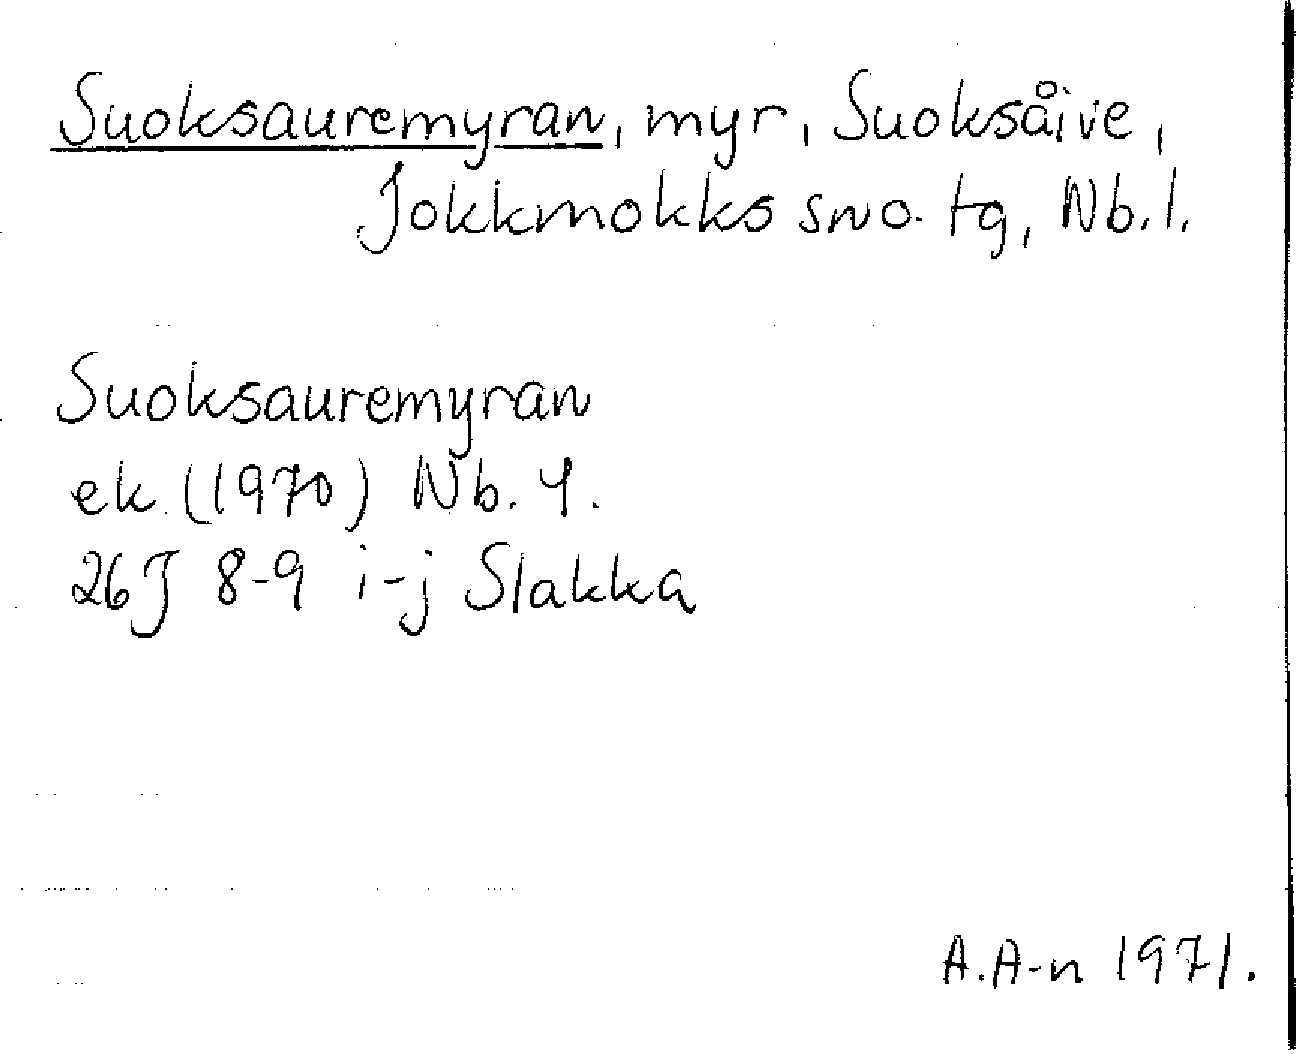 Suoksauremyran, myr, Suoksåive,
Jokkmokks sn o. tg, Nb. l.
Suoksauremyran
ek. (1970) Nb. 4.
26J 8-9 i-j Slakka
A.A-n 1971.